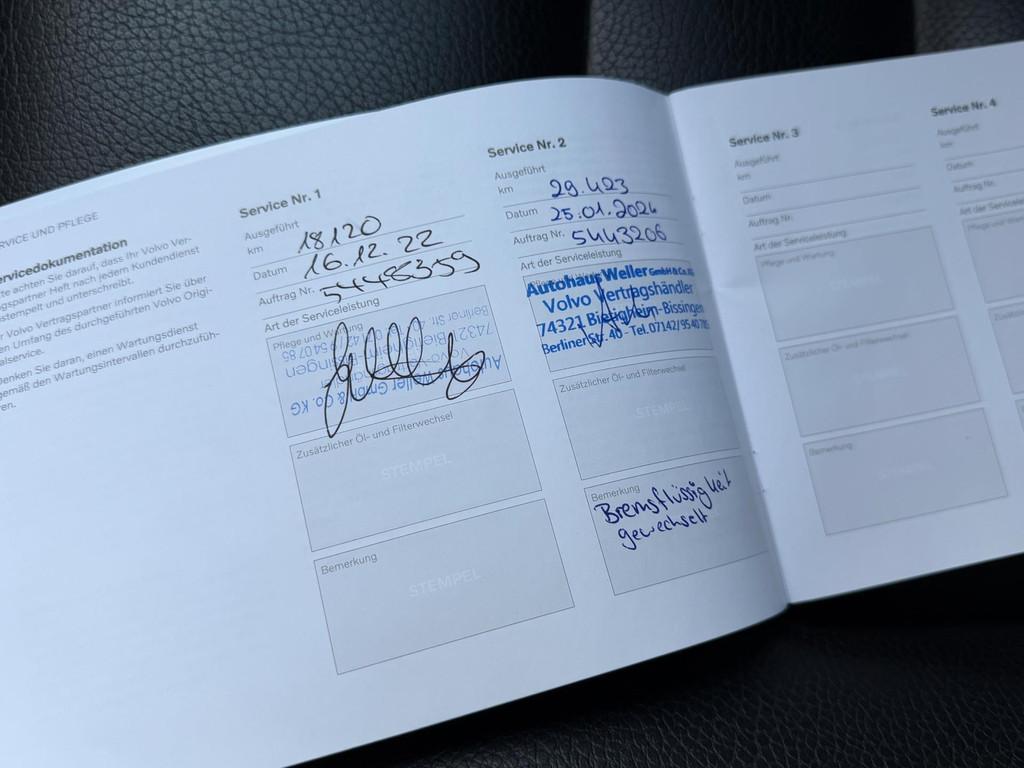 SERVICE UND PFLEGE
Servicedokumentation
achten Sie darauf, dass Ihr Volvo Ver-
gspartner Heft nach jedem Kundendienst
stempelt und unterschreibt.
r Volvo Vertragspartner informiert Sie über
en Umfang des durchgeführten Volvo Origi-
alservice.
Denken Sie daran, einen Wartungsdienst
gemäß den Wartungsintervallen durchzufüh-
ren.
Service Nr. 1
Ausgeführt
km 18120
Datum 16.12.22
Auftrag Nr. 54485359
Art der Serviceleistung
Pflege und Wartung
Autohaus Weller GmbH & Co. KG
Berliner Str. 40
Zusätzlicher Öl- und Filterwechsel
STEMPEL
Bemerkung
STEMPEL
Service Nr. 2
Ausgeführt
km 29.423
Datum 25.01.2024
Auftrag Nr. 5443206
Art der Serviceleistung
Autohaus Weller GmbH & Co. KG
Volvo Vertragshändler
74321 Bietigheim-Bissingen
Berliner Str. 40 - Tel. 07142/9540785
Zusätzlicher Öl- und Filterwechsel
STEMPEL
Bemerkung
Bremsflüssigkeit
gewechselt
Service Nr. 3
Ausgeführt
km
Datum
Auftrag Nr.
Art der Serviceleistung
Pflege und Wartung
STEMPEL
Zusätzlicher Öl- und Filterwechsel
STEMPEL
Bemerkung
STEMPEL
Service Nr. 4
Ausgeführt
km
Datum
Auftrag Nr.
Art der Service